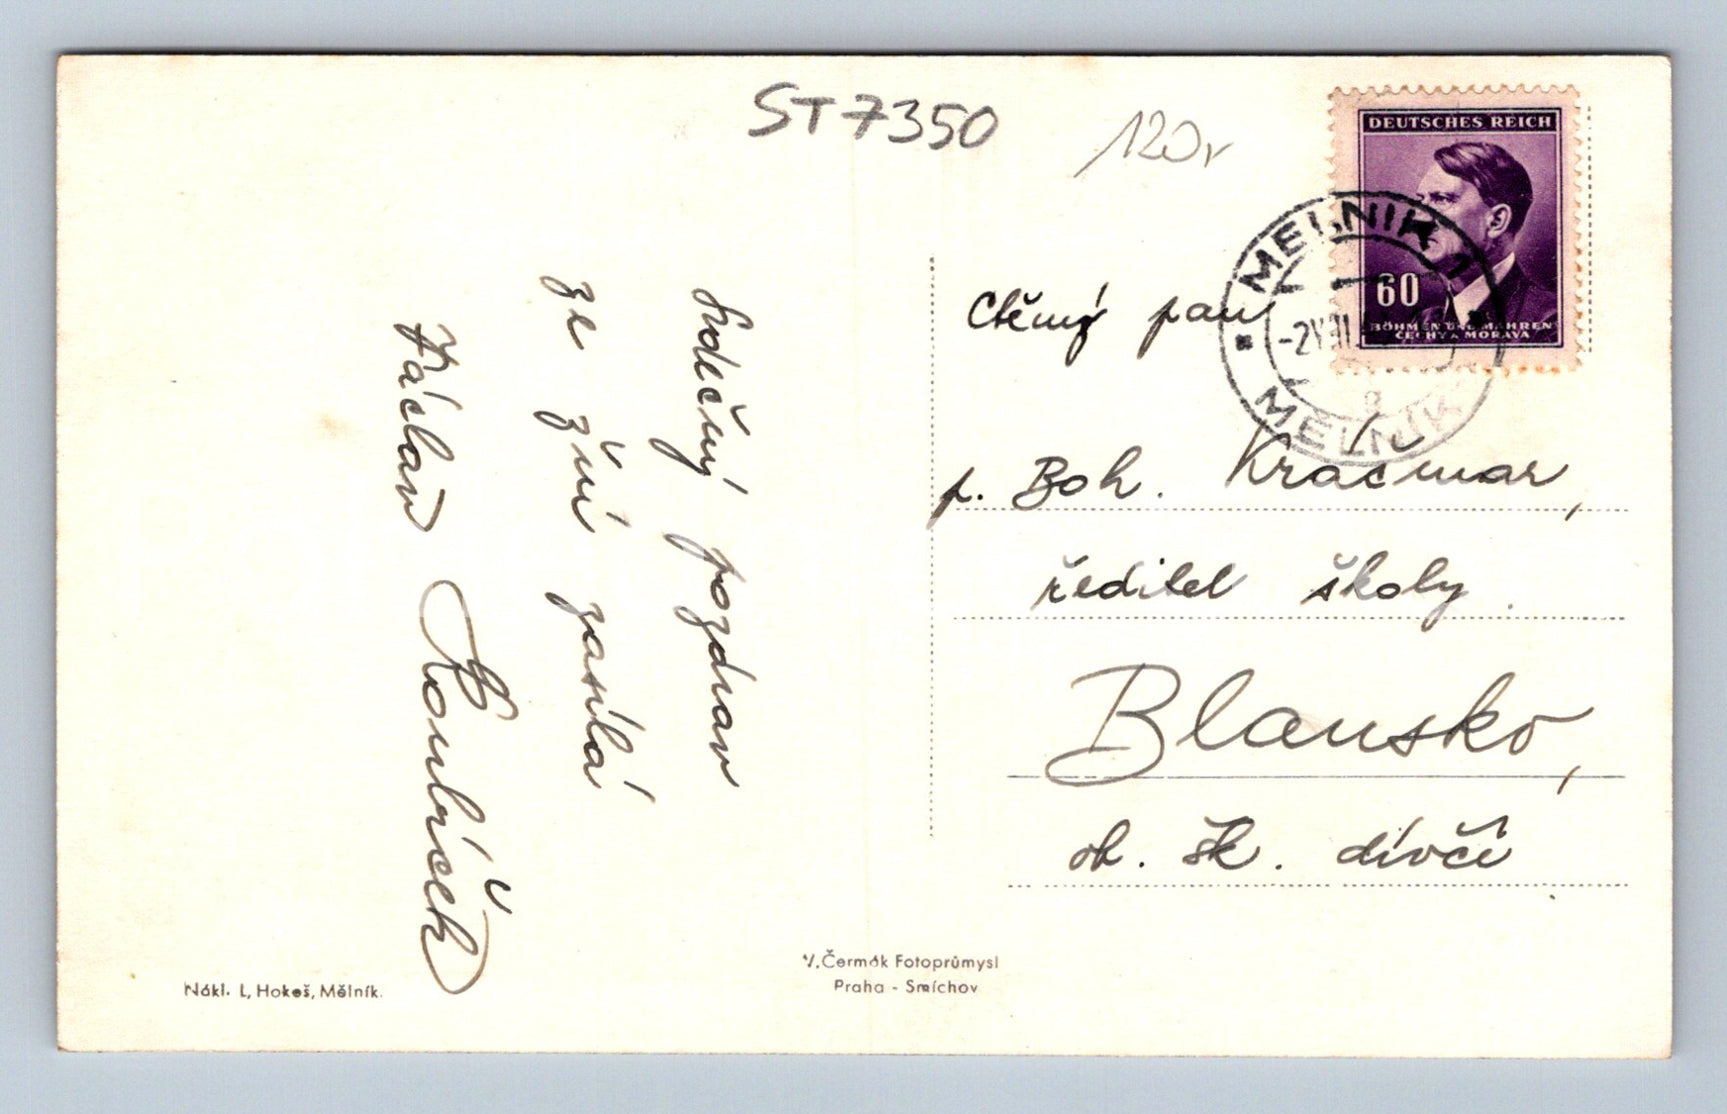 ST7350
120,-
DEUTSCHES REICH
60
BÖHMEN UND MÄHREN
ČECHY A MORAVA
MELNIK 1
MĚLNÍK
Srdečný pozdrav
ze žní zasílá
Václav
Ctěný pan
p. Boh. Kráčmar,
ředitel školy
Blansko,
ob. šk. dívčí
V. Čermák Fotoprůmysl
Praha - Smíchov
Nákl. L. Hokeš, Mělník.